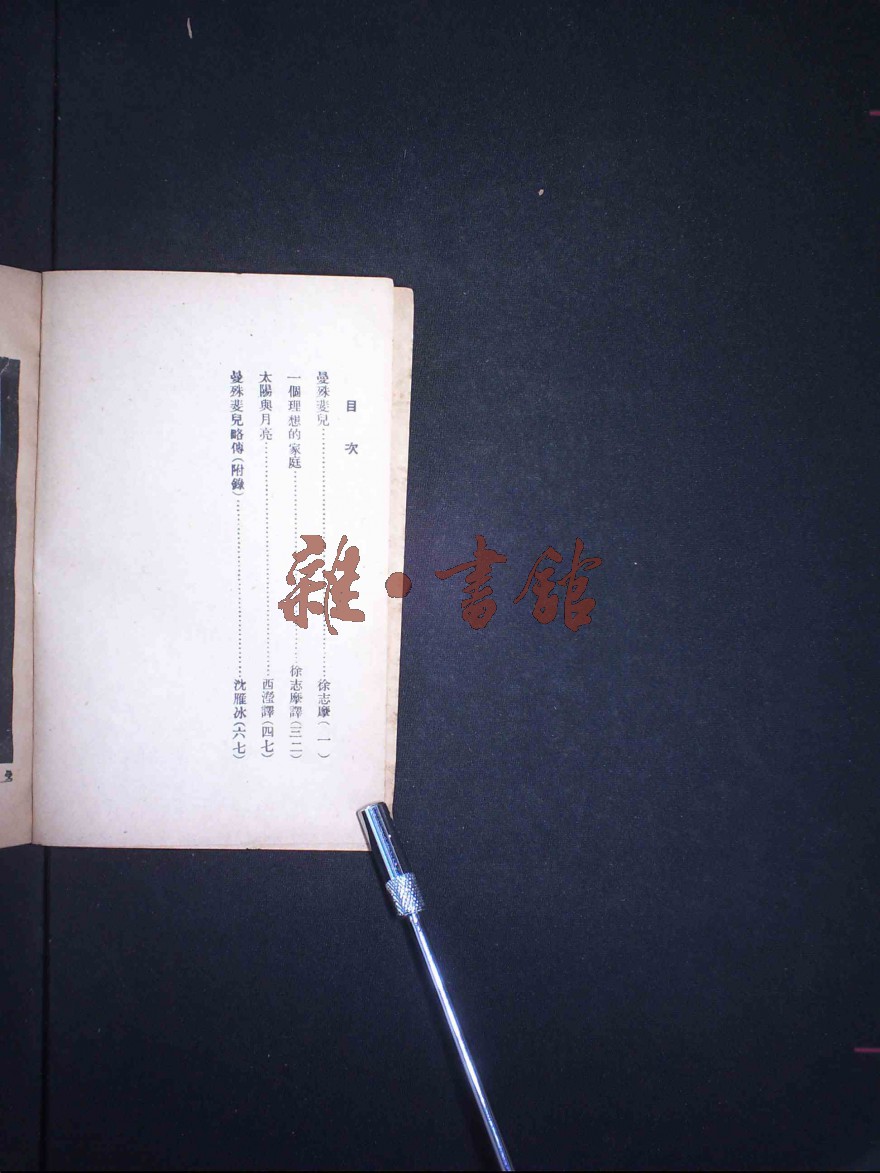 目次
曼殊斐兒……徐志摩(一)
一個理想的家庭……徐志摩譯(三二)
太陽與月亮……西瀅譯(四七)
曼殊斐兒略傳(附錄)……沈雁冰(六七)
雜·書館